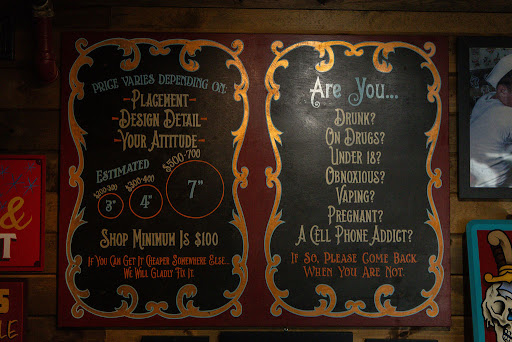 PRICE VARIES DEPENDING ON:
-PLACEMENT-
-DESIGN DETAIL-
-YOUR ATTITUDE-
ESTIMATED
$300-400
$500-700
3"
4"
7"
SHOP MINIMUM IS $100
IF YOU CAN GET IT CHEAPER SOMEWHERE ELSE...
WE WILL GLADLY FIX IT.
ARE YOU...
DRUNK?
ON DRUGS?
UNDER 18?
OBNOXIOUS?
VAPING?
PREGNANT?
A CELL PHONE ADDICT?
IF SO, PLEASE COME BACK
WHEN YOU ARE NOT.
&